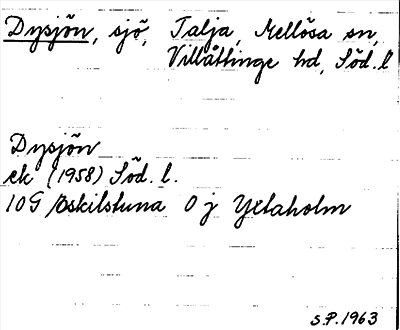 Dysjön, sjö, Talja, Mellösa sn,
Villåttinge hd, Söd. l
Dysjön
ek (1958) Söd. l.
10G Eskilstuna 0 j Yxtaholm
S.P. 1963